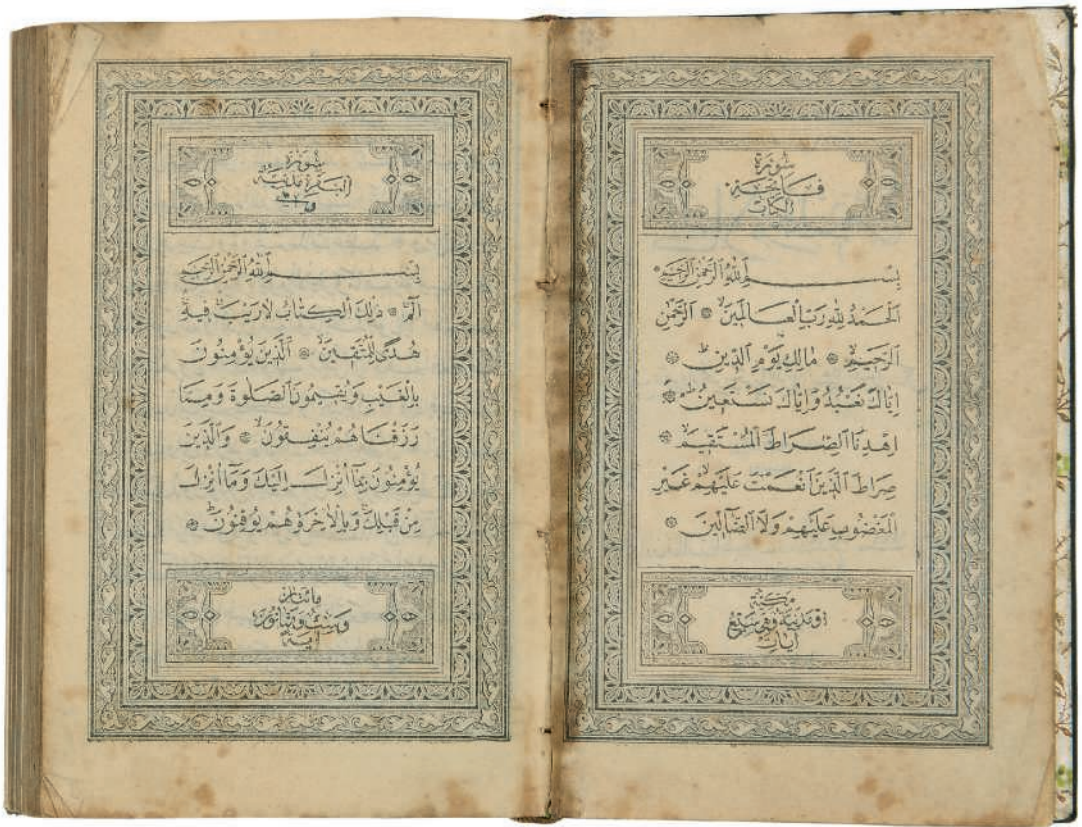 سُورَةُ
فَاتِحَةِ
الكِتَابِ
بِسْمِ اللّٰهِ الرَّحْمٰنِ الرَّحِيمِ
اَلْحَمْدُ لِلّٰهِ رَبِّ الْعَالَمِينَۙ ۞ اَلرَّحْمٰنِ
الرَّحِيمِۙ ۞ مَالِكِ يَوْمِ الدِّينِۜ ۞
اِيَّاكَ نَعْبُدُ وَاِيَّاكَ نَسْتَعِينُۜ ۞
اِهْدِنَا الصِّرَاطَ الْمُسْتَقِيمَۙ ۞
صِرَاطَ الَّذِينَ اَنْعَمْتَ عَلَيْهِمْۙ غَيْرِ
الْمَغْضُوبِ عَلَيْهِمْ وَلَا الضَّٓالِّينَ ۞
مَكِّيَّة
اَوْ مَدَنِيَّة وَهِيَ سَبْعُ
اٰيَات
سُورَةُ
البَقَرَةِ مَدَنِيَّة
بِسْمِ اللّٰهِ الرَّحْمٰنِ الرَّحِيمِ
الٓمٓۚ ۞ ذٰلِكَ الْكِتَابُ لَا رَيْبَۚۛ فِيهِۚۛ
هُدًى لِلْمُتَّقِينَۙ ۞ اَلَّذِينَ يُؤْمِنُونَ
بِالْغَيْبِ وَيُقِيمُونَ الصَّلٰوةَ وَمِمَّا
رَزَقْنَاهُمْ يُنْفِقُونَۙ ۞ وَالَّذِينَ
يُؤْمِنُونَ بِمَٓا اُنْزِلَ اِلَيْكَ وَمَٓا اُنْزِلَ
مِنْ قَبْلِكَۚ وَبِالْاٰخِرَةِ هُمْ يُوقِنُونَۜ ۞
مِائَتَانِ
وَسِتّ وَثَمَانُونَ
اٰيَة